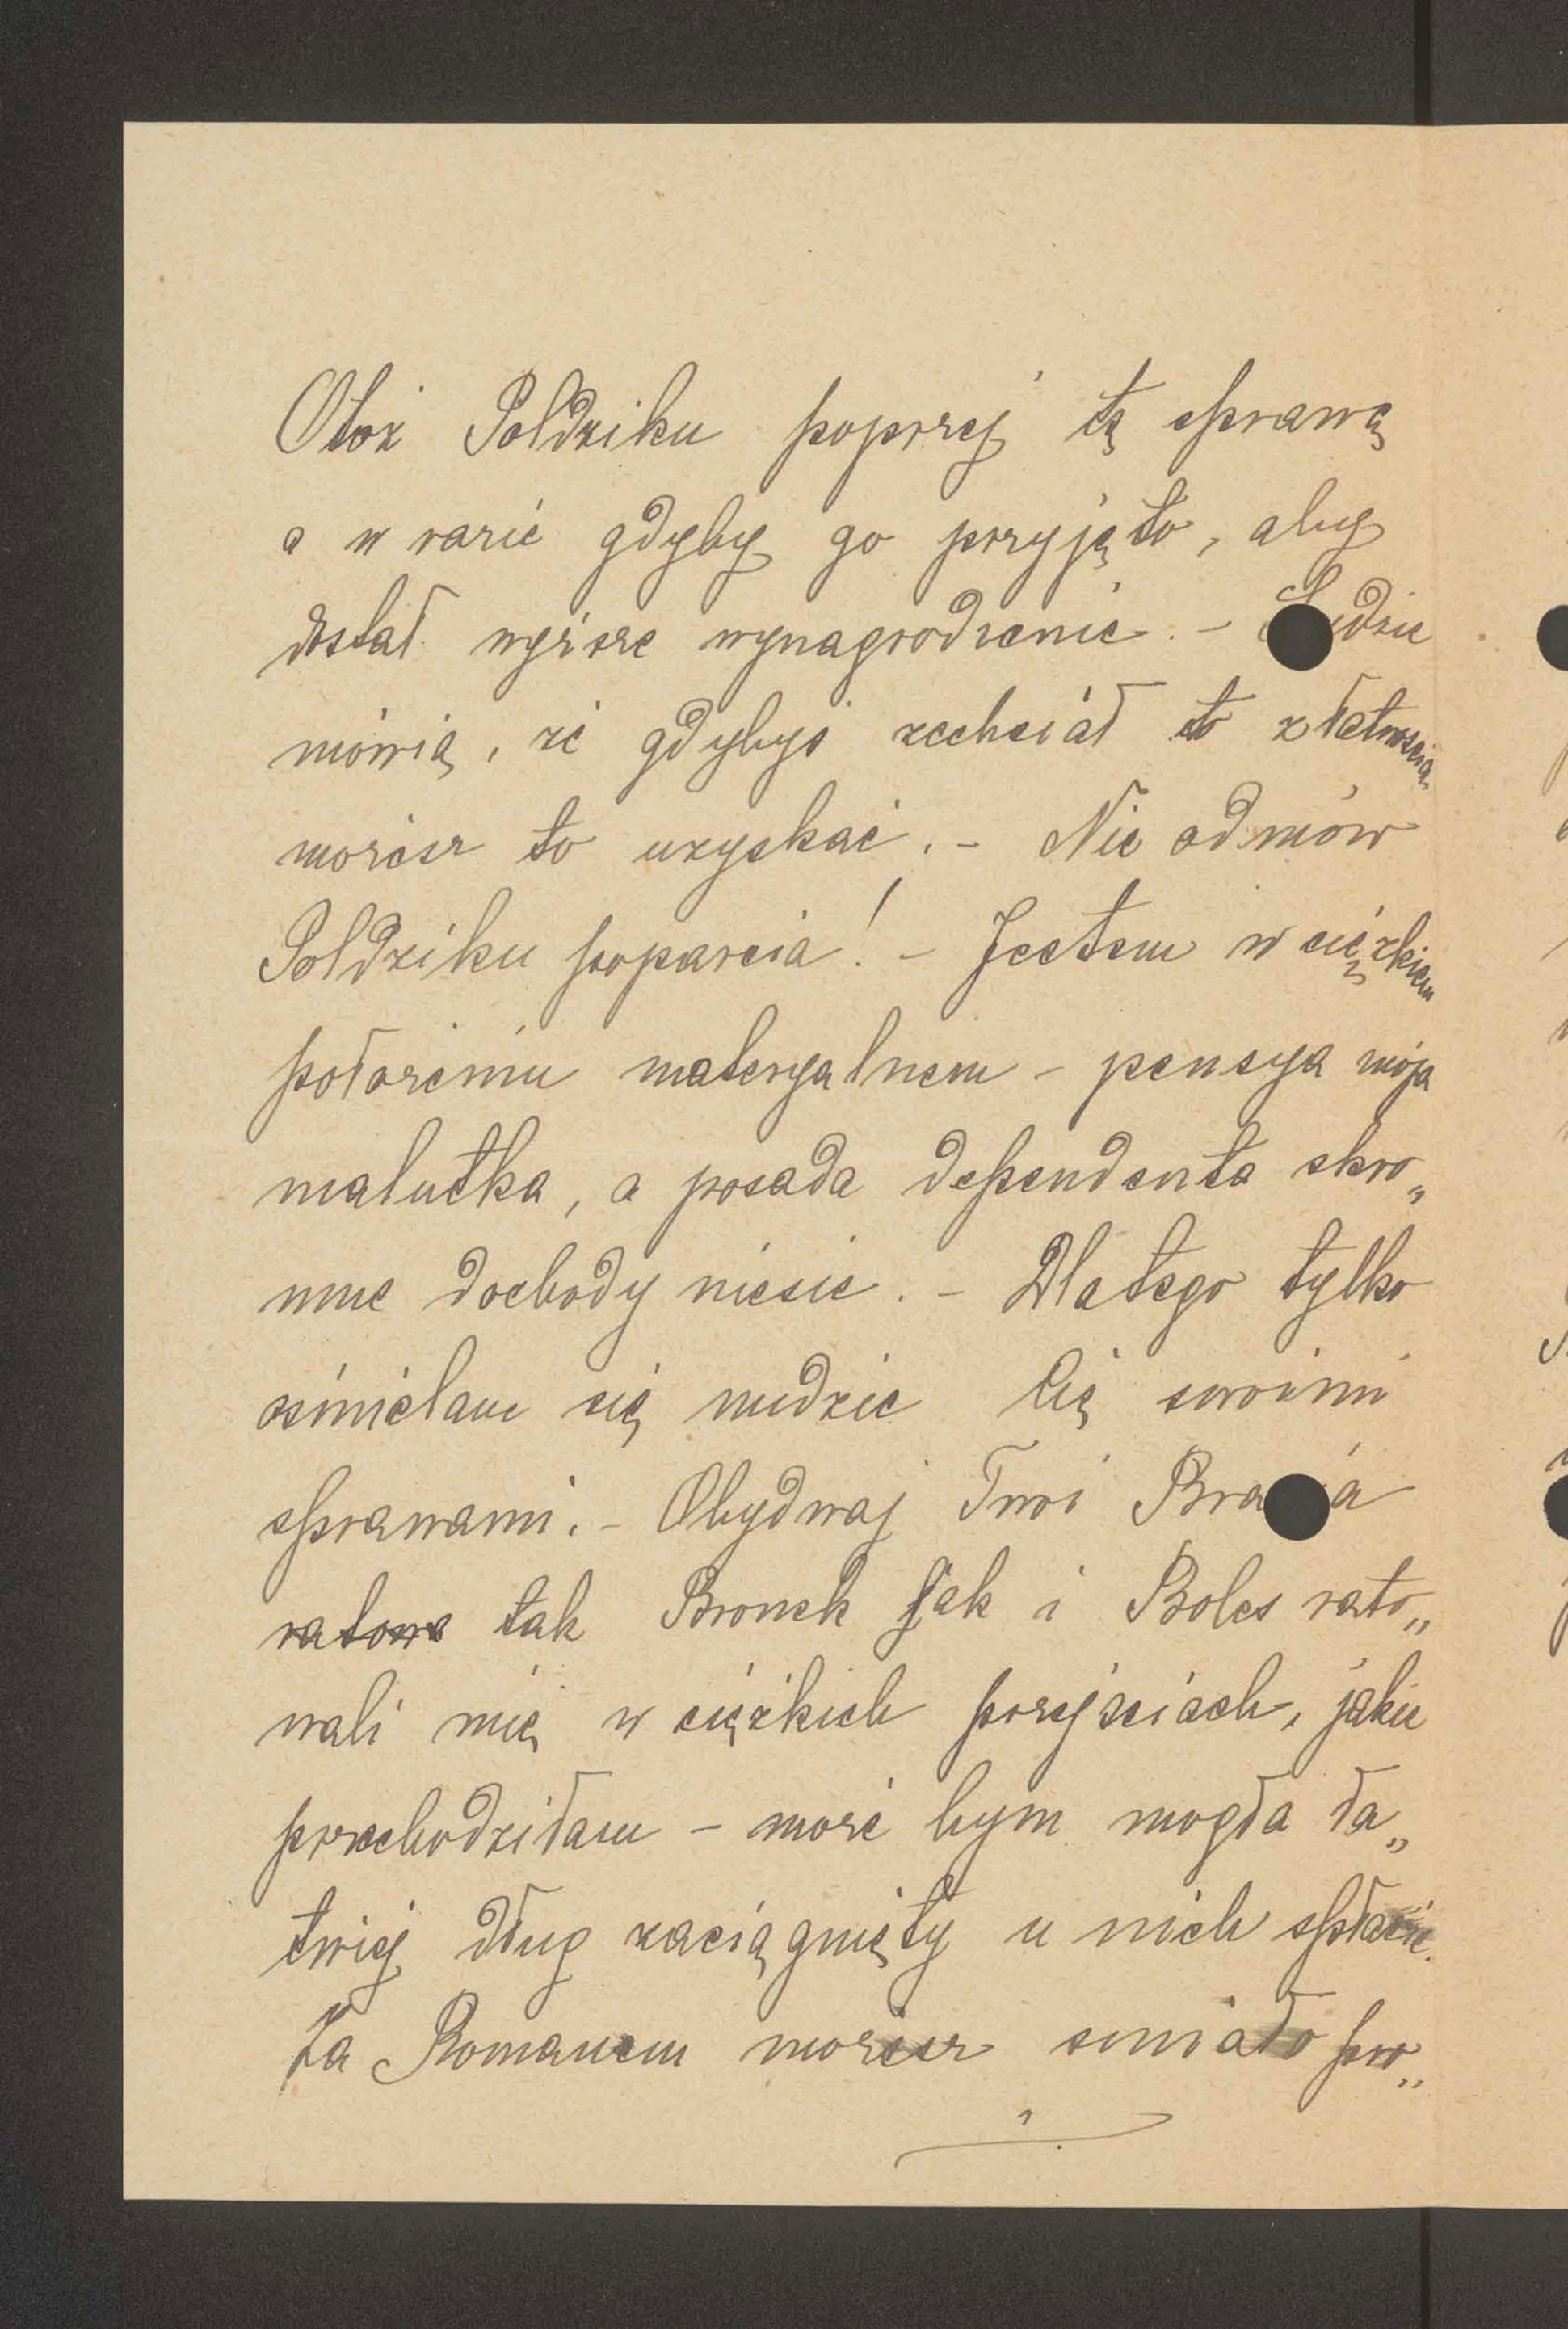 Otoż Poldziku poprzej tę sprawę
a w razie gdyby go przyjęto, aby
dostał wyższe wynagrodzenie. – Ludzie
mówią, że gdybyś zechciał to z łatwością
możesz to uzyskać. – Nie odmów
Poldziku poparcia! – Jestem w ciężkiem
położeniu materyalnem – pensya moja
malutka, a posada dependenta skro„
mne dochody niesie. – Dlatego tylko
ośmielam się nudzić Cię swoimi
sprawami. – Obydwaj Twoi Bracia
ratowa tak Bronek jak i Boleś rato„
wali mię w ciężkich przejściach, jakie
przechodziłam – może bym mogła ła„
twiej dług zaciągnięty u nich spłacić.
Za Romanem możesz śmiało pro„